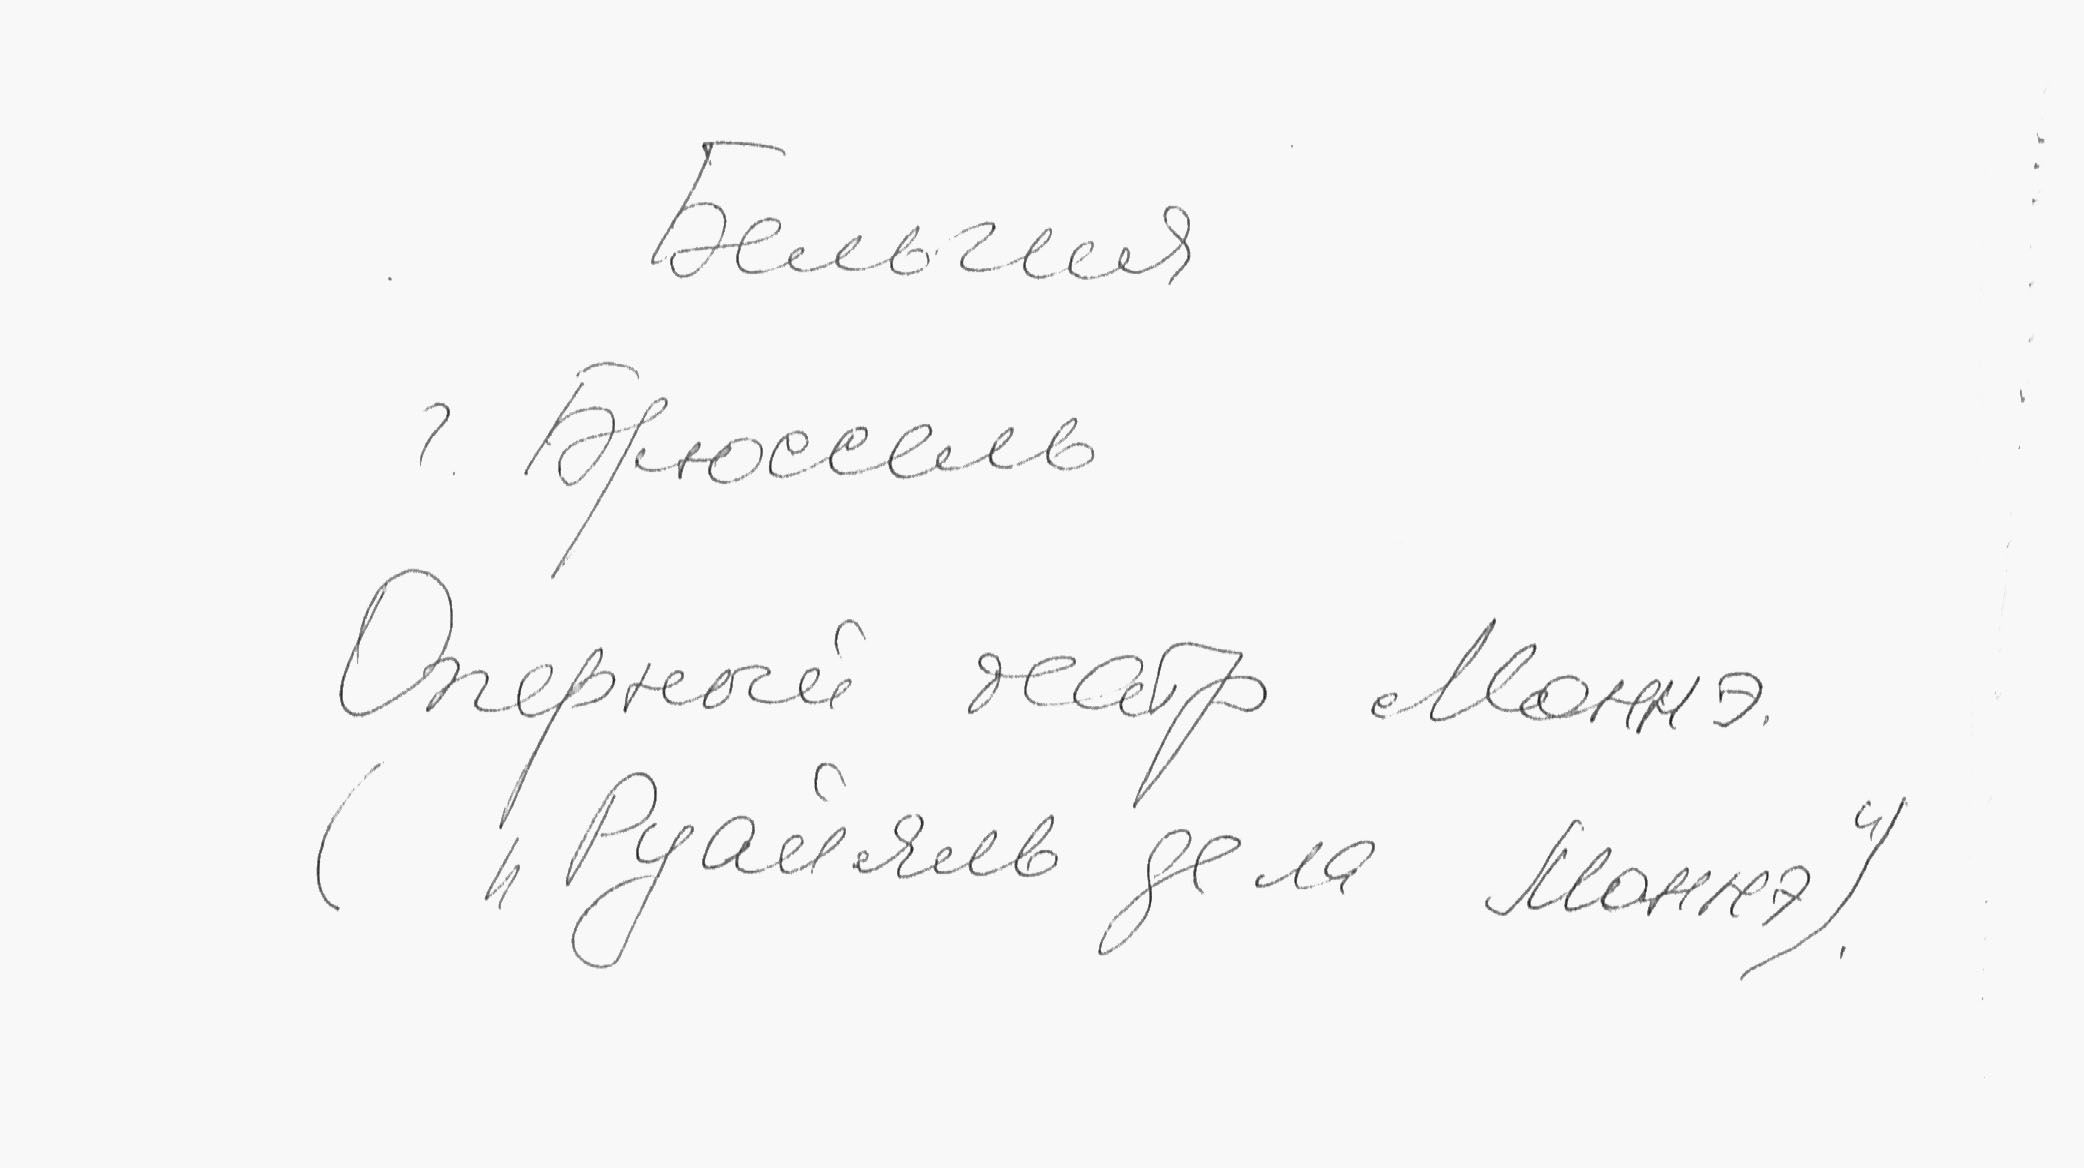 Бельгия
г. Брюссель
Оперный театр Моннэ.
( „Руайяль де ла Моннэ“).